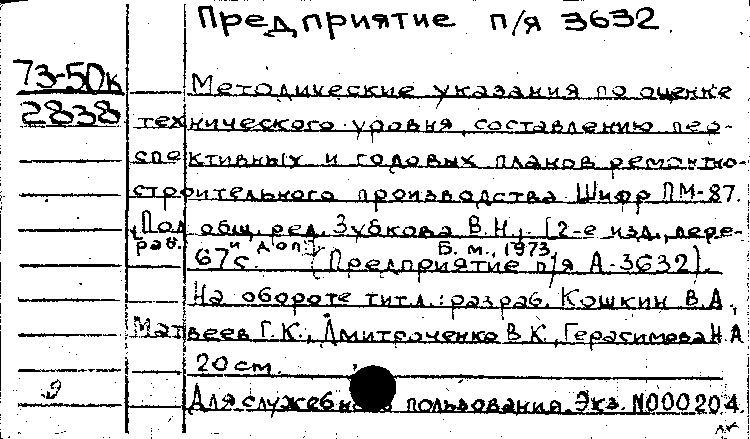 Предприятие п/я 3632
73-50к
2838
Методические указания по оценке
технического уровня, составлению пер-
спективных и годовых планов ремонтно-
строительного производства. Шифр ПМ-87.
Под общ. ред. Зубкова В.Н., [2-е изд., пере-
раб. и доп.] Б. м., 1973
67с. (Предприятие п/я А-3632).
На обороте титл.: разраб. Кошкин В.А.,
Матвеев Г.К., Дмитраченко В.К., Герасимова Н.А
20 см.
Для служебного пользования. Экз. N000204.